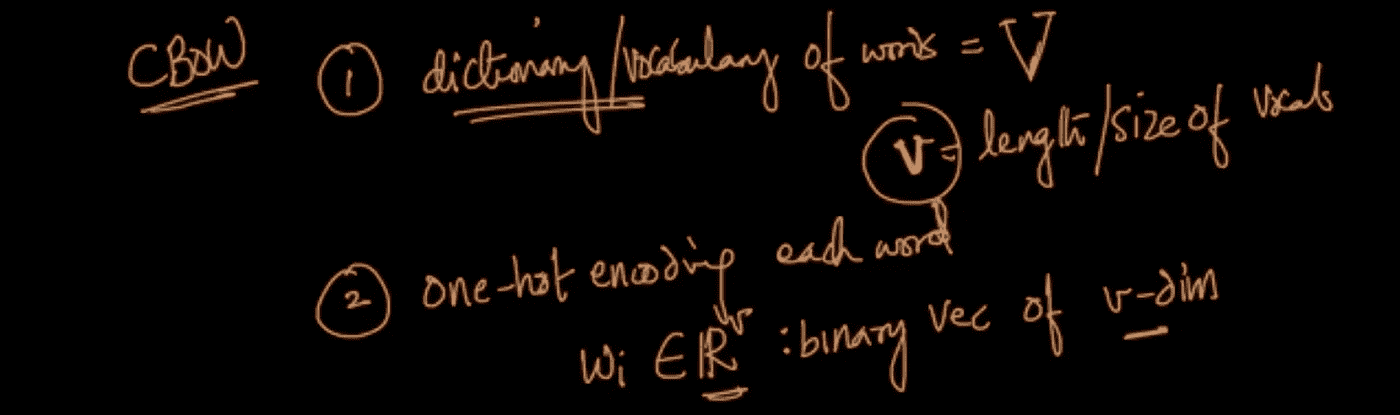 CBOW ① dictionary/vocabulary of words = V
v = length/size of vocab
② one-hot encoding each word
Wi ∈ ℝᵛ : binary vec of v-dim